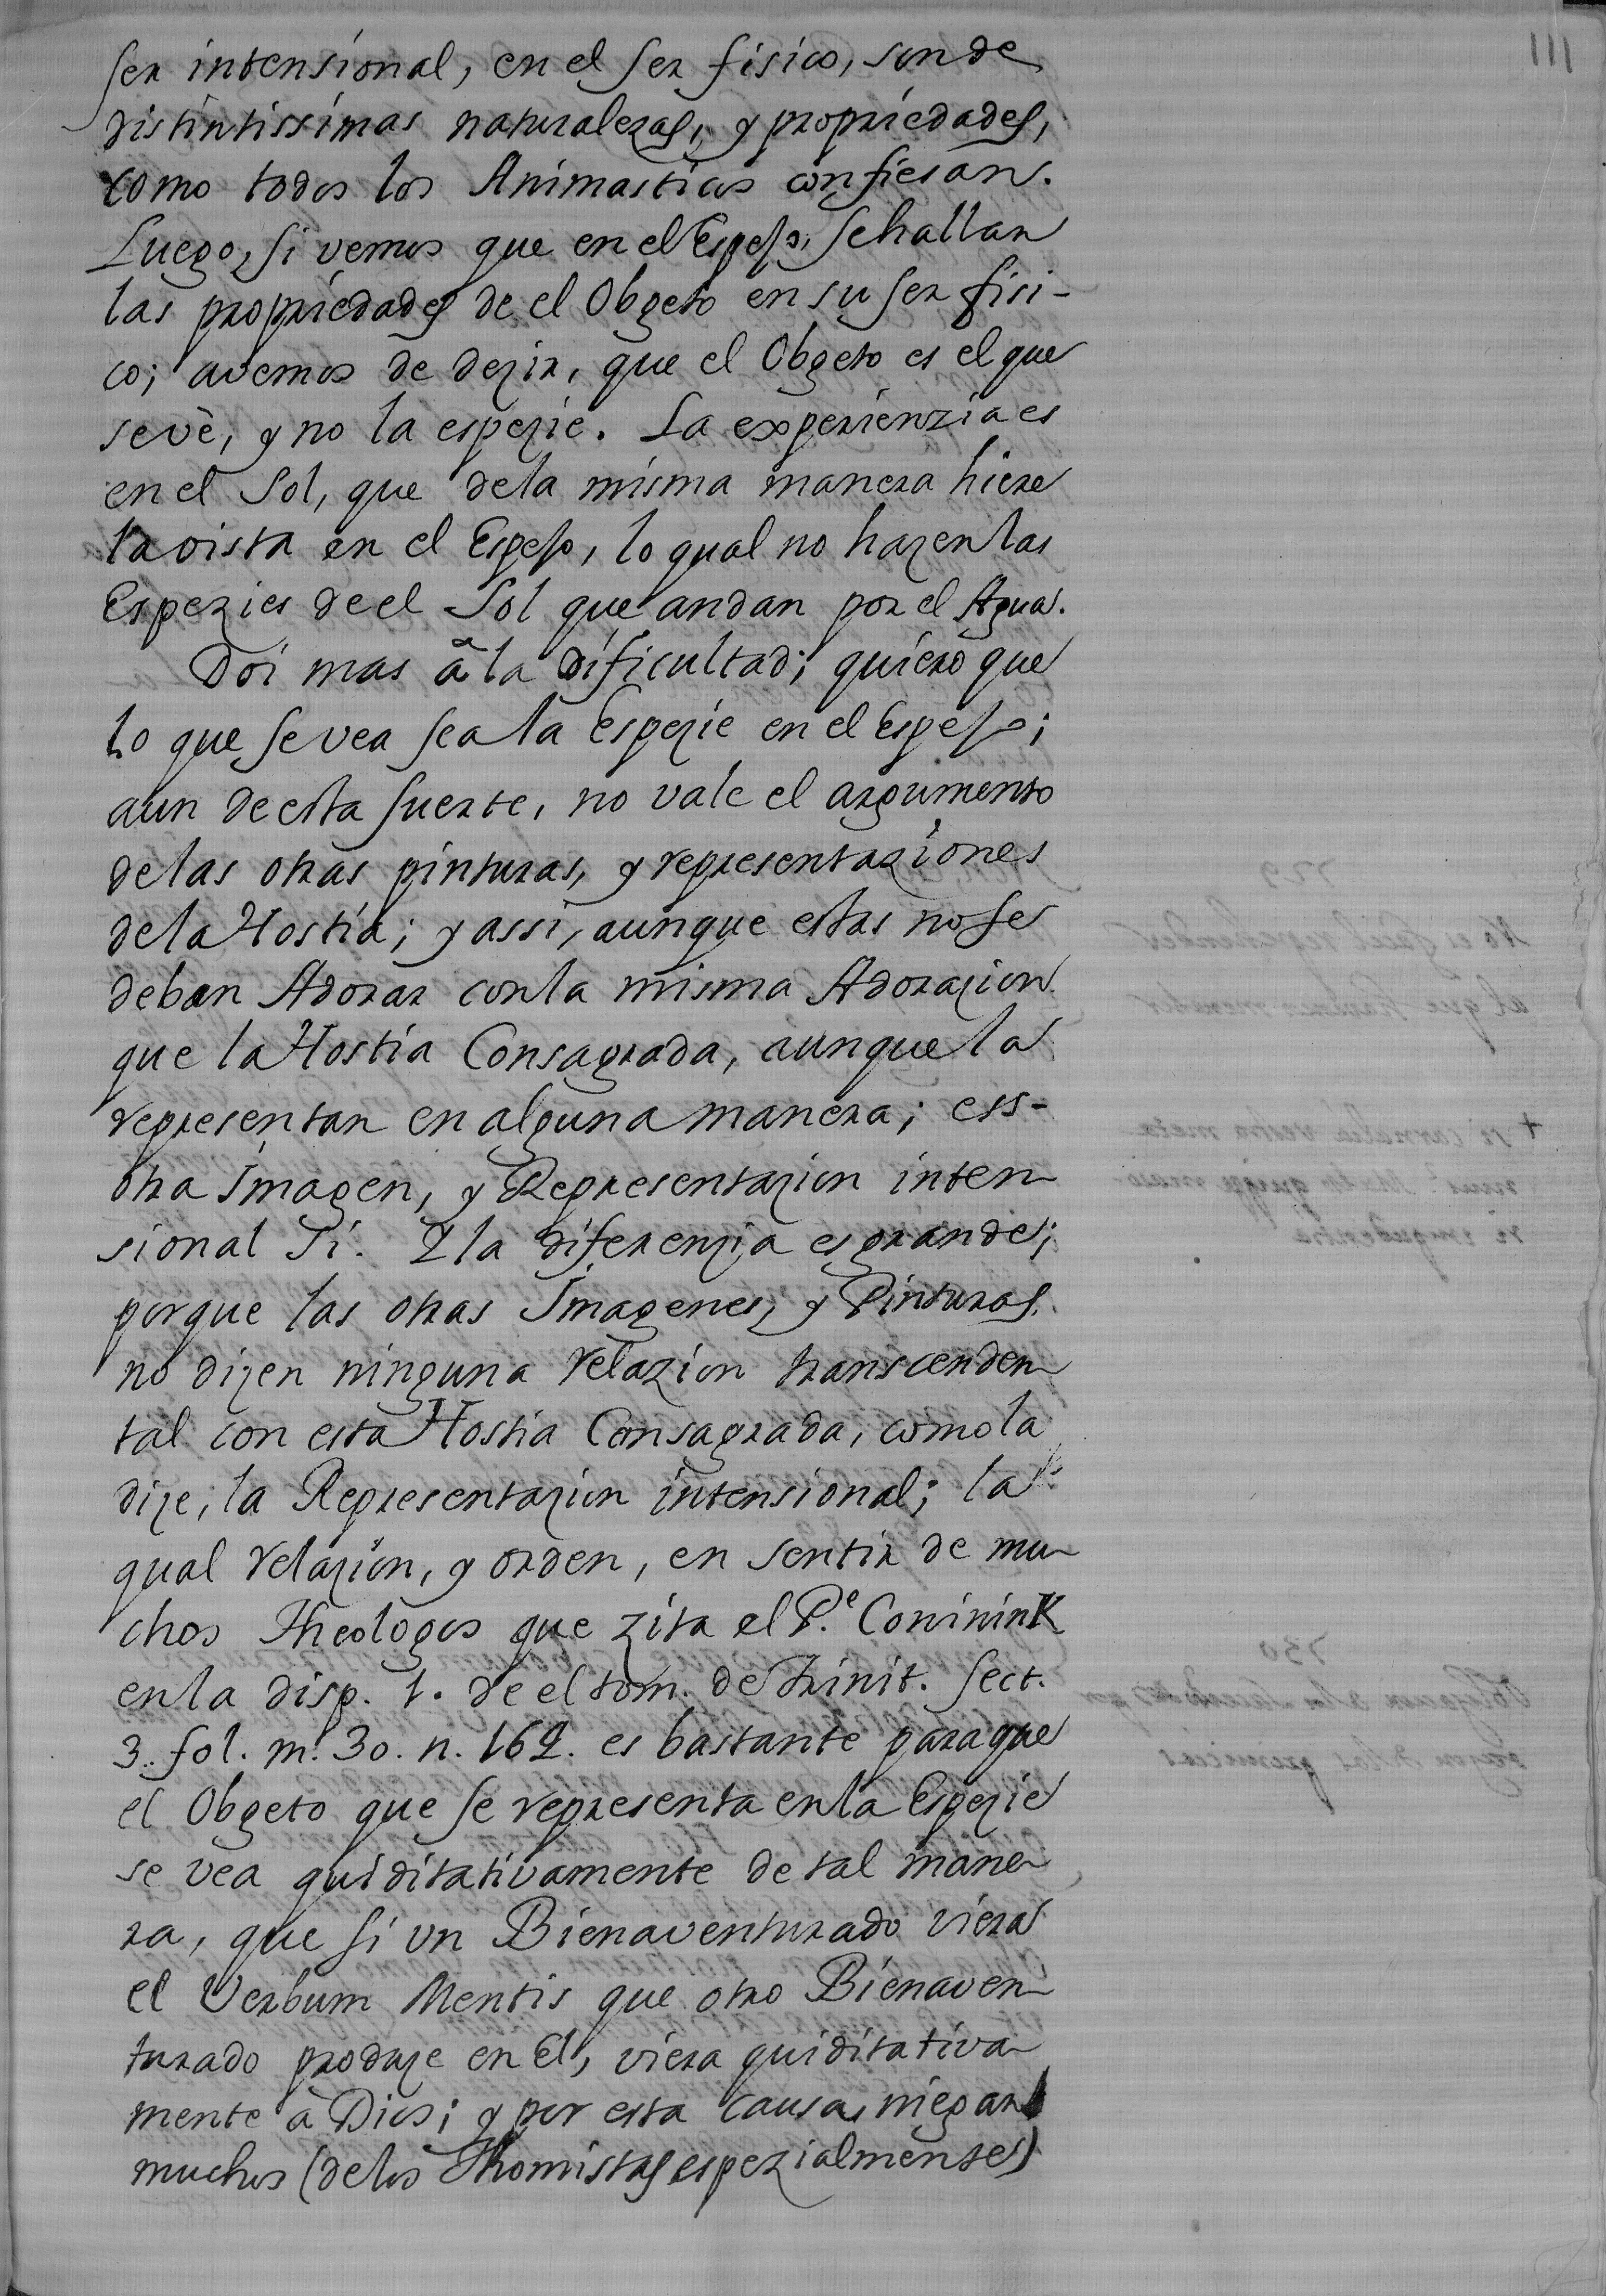 111
ser intensional, en el ser fisico, son de
distintissimas naturalezas, y propriedades,
como todos los Animasticos confiesan.
Luego, si vemos que en el Espejo, se hallan
las propriedades de el Obgeto en su ser fisi-
co; avemos de dezir, que el Obgeto es el que
se vè, y no la espezie. La experienzia es
en el Sol, que de la misma manera hiere
la vista en el Espejo, lo qual no hazen las
Espezies de el Sol que andan por el Agua.
Doi mas â la dificultad; quiero que
lo que se vea sea la Espezie en el Espejo;
aun de esta suerte, no vale el argumento
de las otras pinturas, y representaziones
de la Hostia; y assi, aunque estas no se
deban Adorar con la misma Adorazion
que la Hostia Consagrada, aunque la
representan en alguna manera; ess-
otra Imagen, y Representazion inten-
sional Si. I la diferenzia es grande;
porque las otras Imagenes, y Pinturas,
no dizen ninguna relazion transcenden-
tal con esta Hostia Consagrada, como la
dize, la Representazion intensional; la
qual relazion, y orden, en sentir de mu-
chos Theologos que zita el P.e Coninink
en la disp. 1. de el tom. de trinit. sect.
3. fol. m. 30. n. 162. es bastante para que
el Obgeto que se representa en la Espezie
se vea quiditativamente de tal mane-
ra, que si un Bienaventurado viera
el Verbum Mentis que otro Bienaven-
turado produze en El, viera quiditativa-
mente à Dios; y por esta causa, niegan
muchos (de los Thomistas espezialmente)